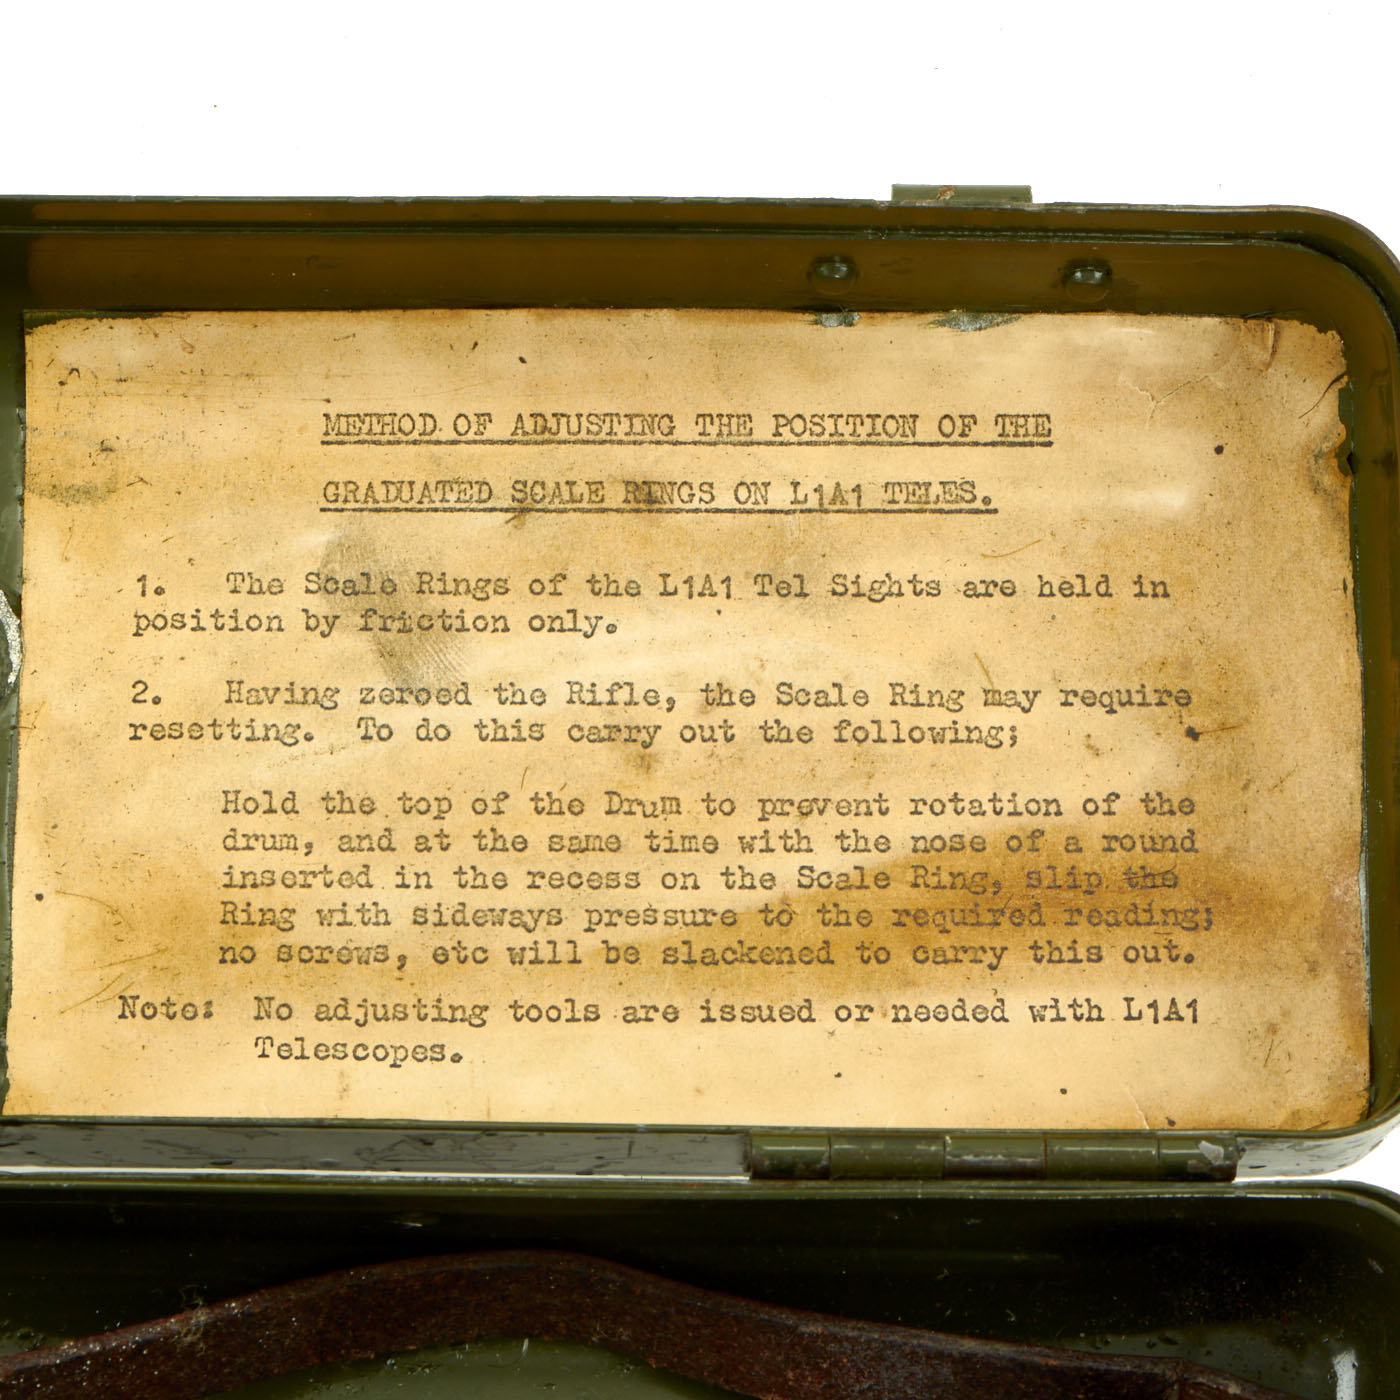 METHOD OF ADJUSTING THE POSITION OF THE
GRADUATED SCALE RINGS ON L1A1 TELES.
1. The Scale Rings of the L1A1 Tel Sights are held in
position by friction only.
2. Having zeroed the Rifle, the Scale Ring may require
resetting. To do this carry out the following;
Hold the top of the Drum to prevent rotation of the
drum, and at the same time with the nose of a round
inserted in the recess on the Scale Ring, slip the
Ring with sideways pressure to the required reading;
no screws, etc will be slackened to carry this out.
Note: No adjusting tools are issued or needed with L1A1
Telescopes.